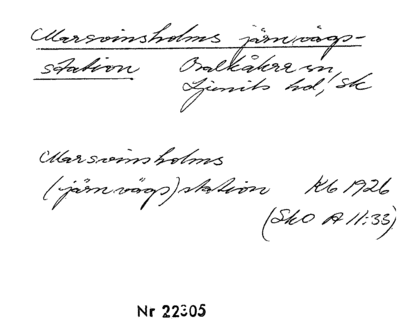 Marsvinsholms järnvägs-
station Balkåkra sn
Ljunits hd, Sk
Marsvinsholms
(järnvägs)station Kb 1926
(SkO A 11:33)
Nr 22305